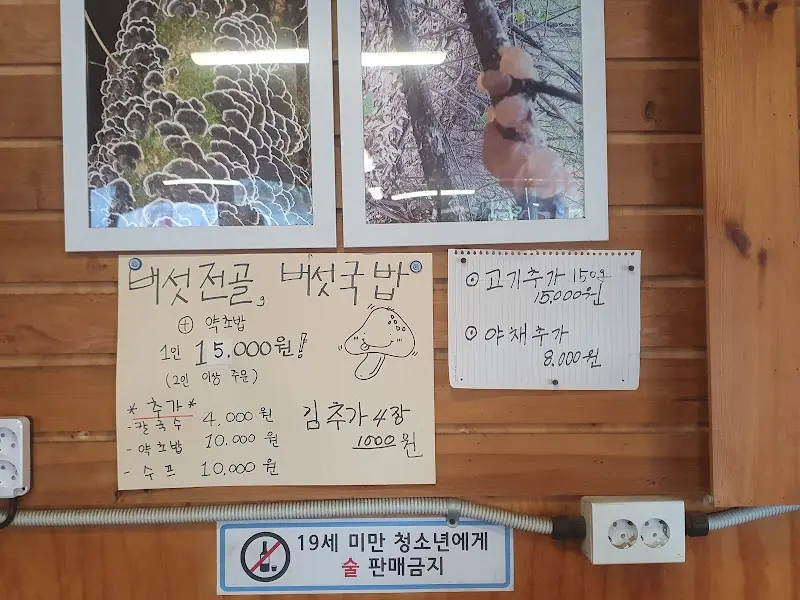 버섯전골, 버섯국밥
⊕ 약초밥
1인 15.000원!
(2인 이상 주문)
* 추가 *
- 칼국수 4.000원
- 약초밥 10.000원
- 수프 10,000원
김추가 4장
1000원
⊙ 고기추가 150g
15.000원
⊙ 야채추가
8.000원
19세 미만 청소년에게
술 판매금지